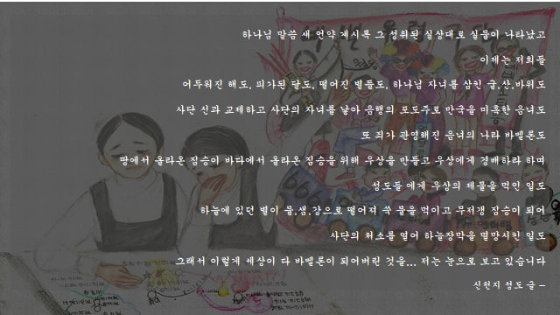 하나님 말씀 새 언약 계시록 그 성취된 실상대로 실물이 나타났고
이제는 저희들
어두워진 해도, 피가된 달도, 떨어진 별들도, 하나님 자녀를 삼킨 굴,산,바위도
사단 신과 교제하고 사단의 자녀를 낳아 음행의 포도주로 만국을 미혹한 음녀도
또 죄가 관영해진 음녀의 나라 바벨론도
땅에서 올라온 짐승이 바다에서 올라온 짐승을 위해 우상을 만들고 우상에게 경배하라 하며
성도들 에게 우상의 제물을 먹인 일도
하늘에 있던 별이 물,샘,강으로 떨어져 쑥 물을 먹이고 무저갱 짐승이 되어
사단의 처소를 열어 하늘장막을 멸망시킨 일도
그래서 이렇게 세상이 다 바벨론이 되어버린 것을... 저는 눈으로 보고 있습니다
신천지 성도 글 –
666